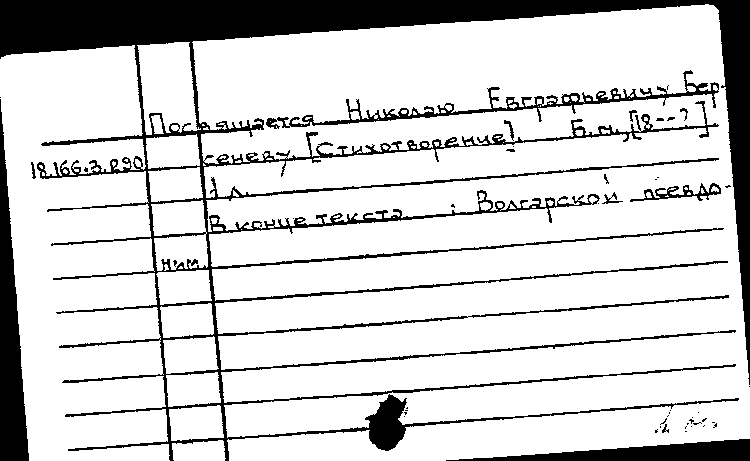 Посвящается Николаю Евграфьевичу Бер-
18.166.3.290 сеневу. [Стихотворение]. Б.м., [18--?].
1 л.
В конце текста : Волгарской псевдо-
ним.